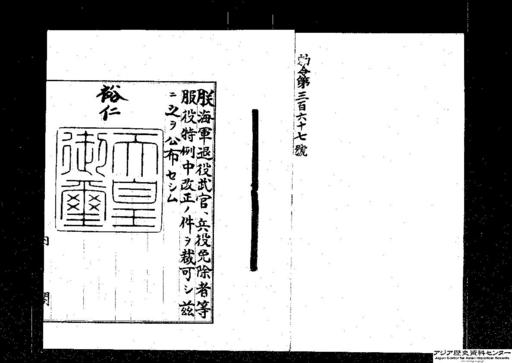 勅令第三百六十七號
朕海軍退役武官、兵役免除者等
服役特例中改正ノ件ヲ裁可シ茲
ニ之ヲ公布セシム
裕仁
天皇御璽
内閣
アジア歴史資料センター
Japan Center for Asian Historical Records